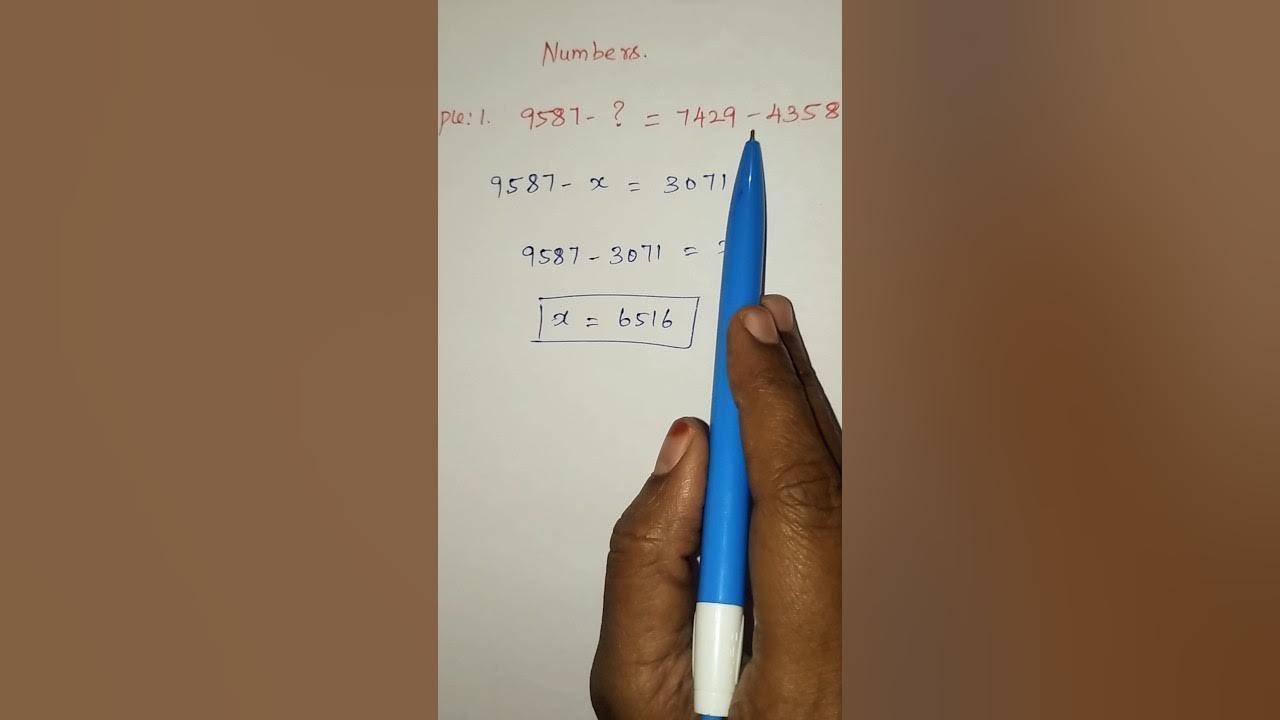 Numbers.
ple: 1. 9587 - ? = 7429 - 4358
9587 - x = 3071
9587 - 3071 =
x = 6516